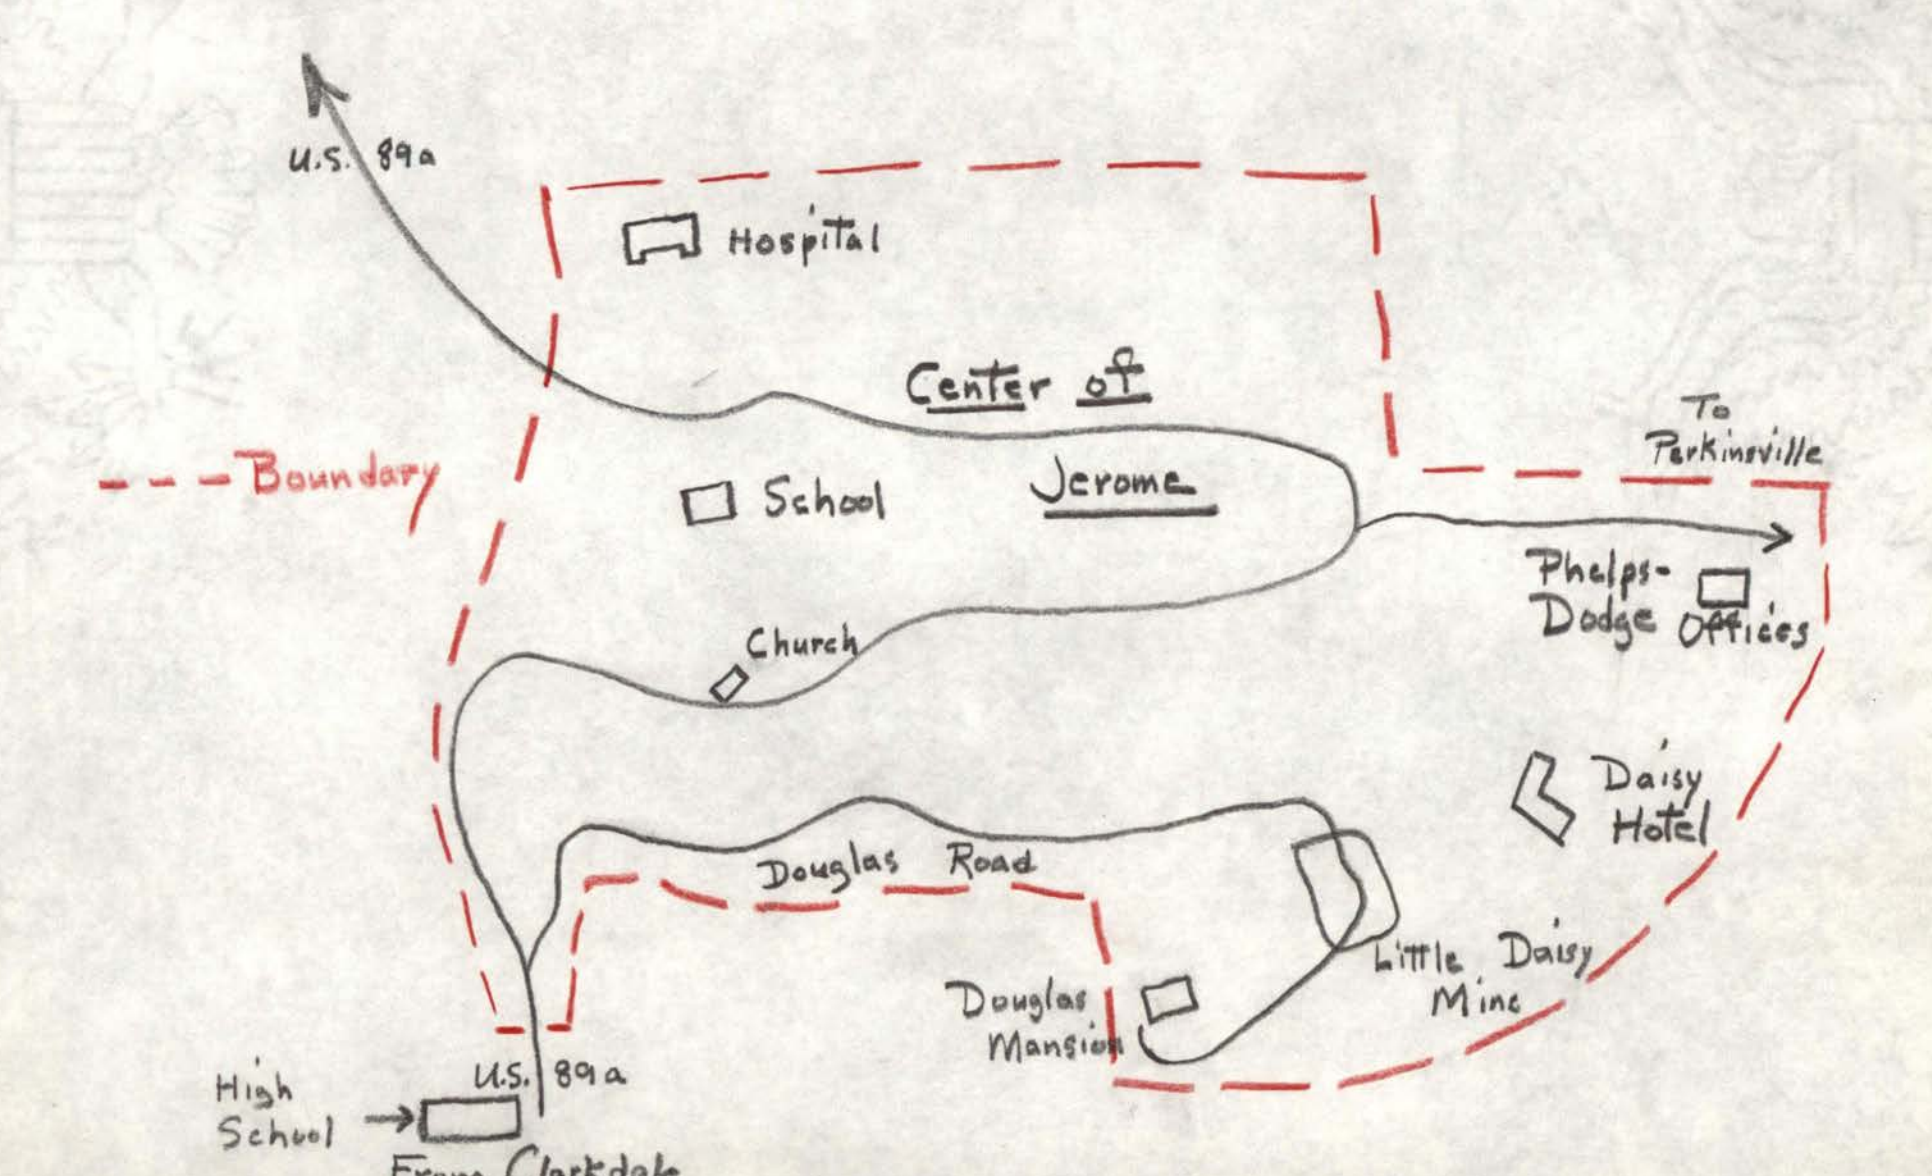 U.S. 89a
Hospital
Center of
Jerome
To
Perkinsville
--- Boundary
School
Phelps-
Dodge Offices
Church
Daisy
Hotel
Douglas Road
Little Daisy
Mine
Douglas
Mansion
U.S. 89a
High
School
From Clarkdale